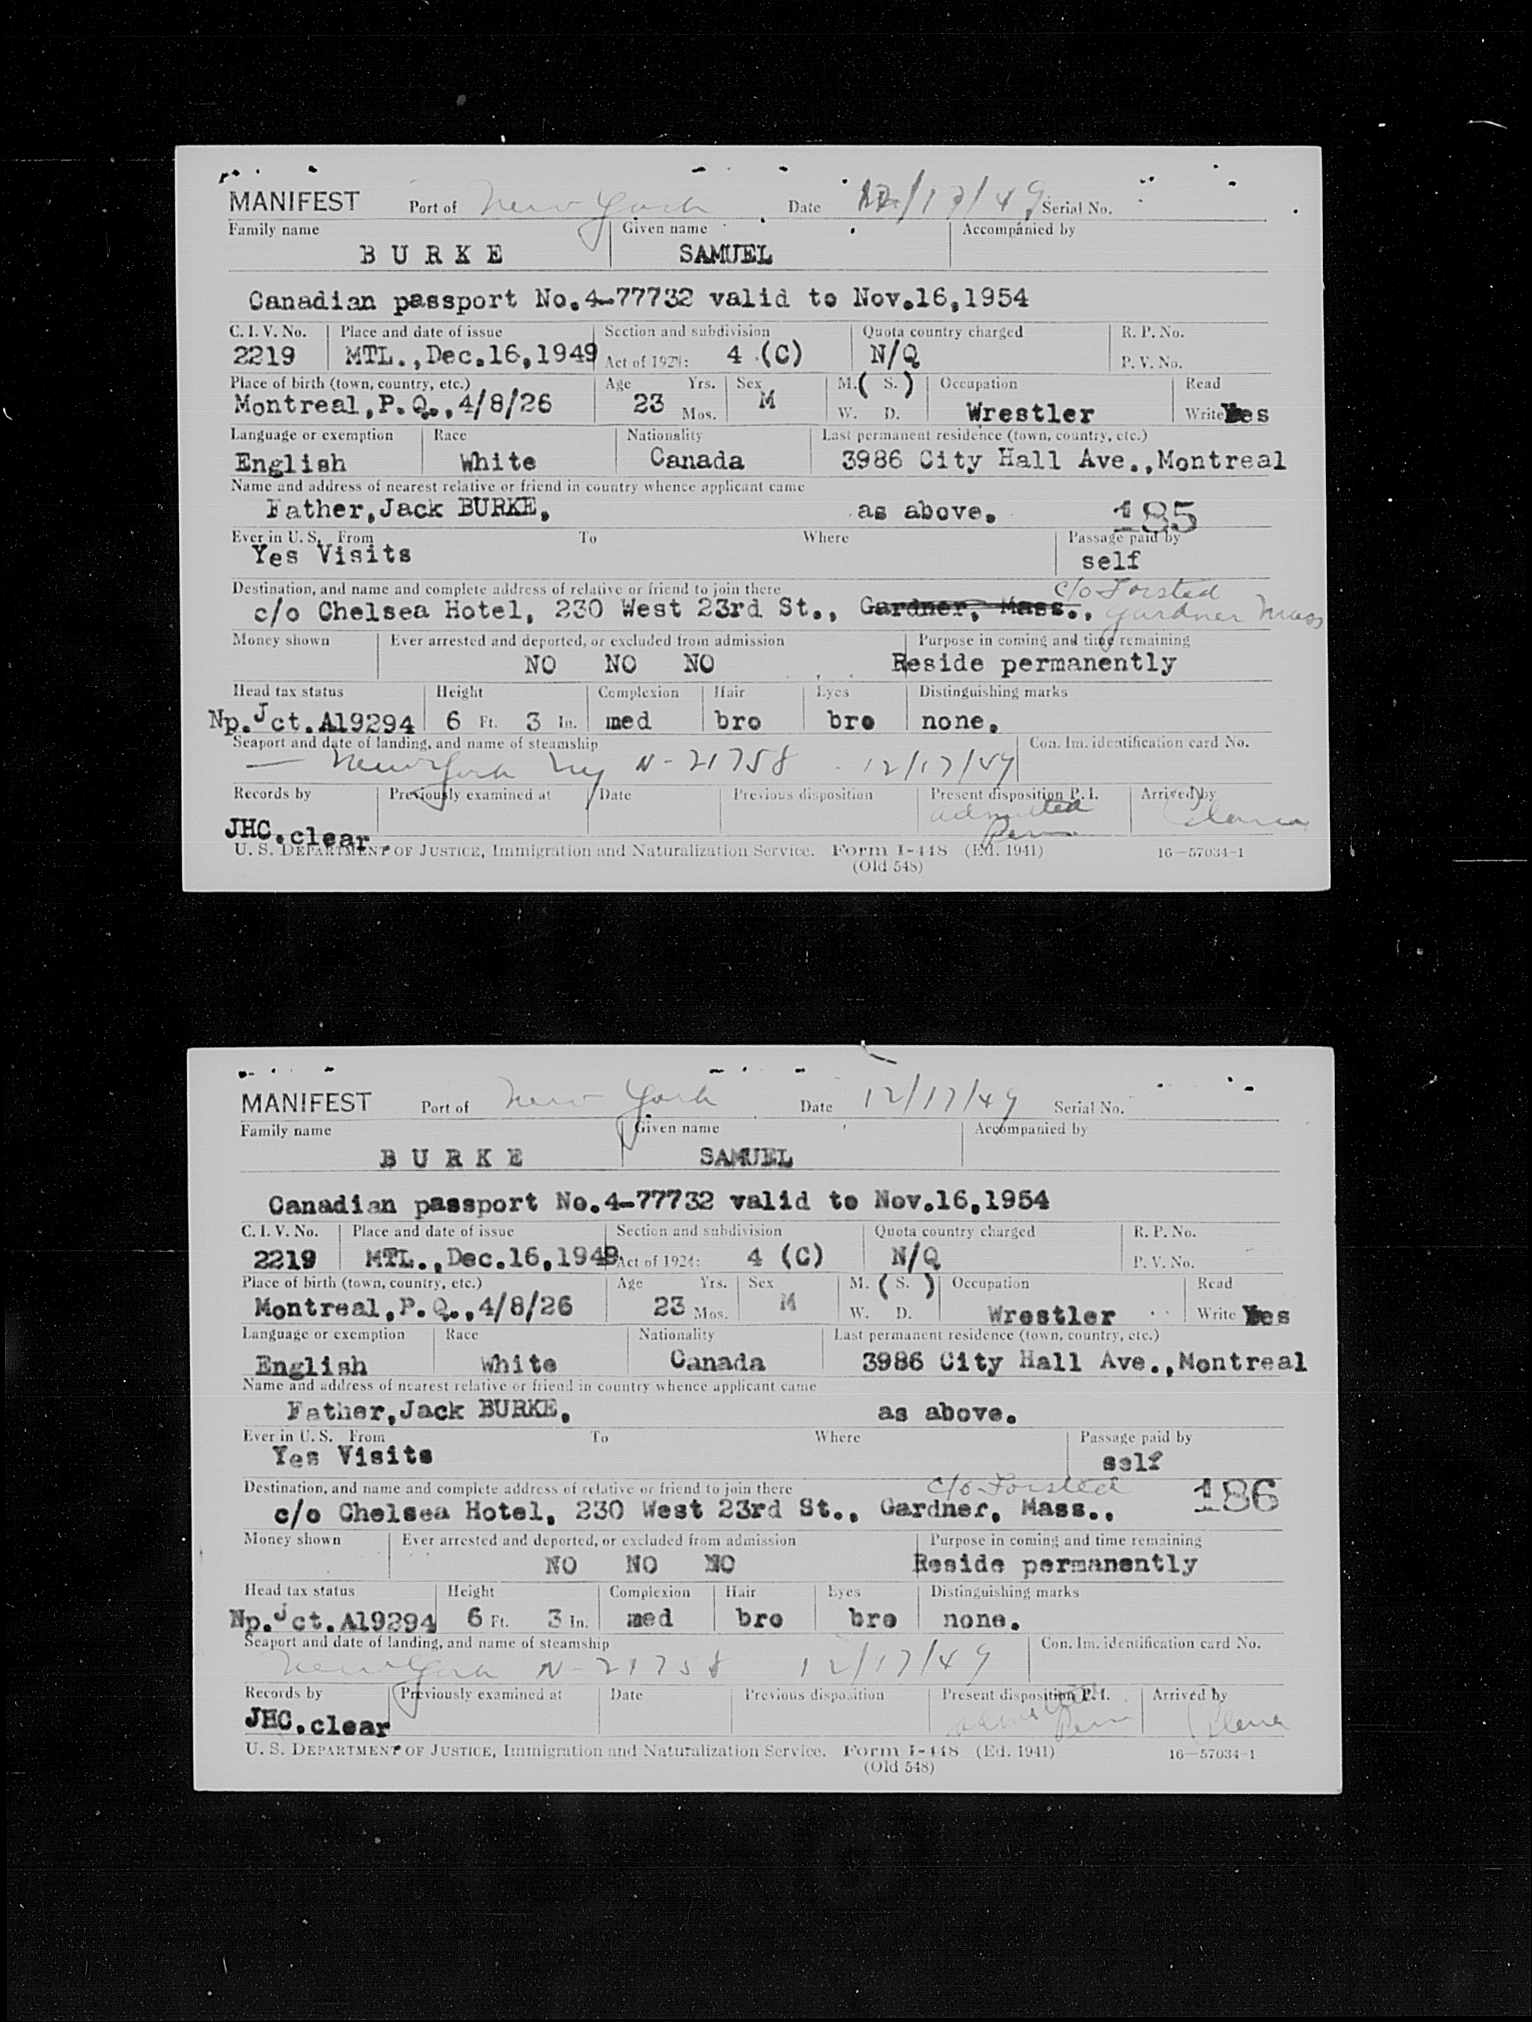 MANIFEST Port of New York Date 12/17/49 Serial No.
Family name Given name Accompanied by
BURKE SAMUEL
Canadian passport No.4-77732 valid to Nov.16,1954
C. I. V. No. Place and date of issue Section and subdivision Quota country charged R. P. No.
2219 MTL.,Dec.16,1949 Act of 1924: 4 (C) N/Q P. V. No.
Place of birth (town, country, etc.) Age Yrs. Sex M. ( S. ) Occupation Read
Montreal,P.Q.,4/8/26 23 Mos. M W. D. Wrestler Write Yes
Language or exemption Race Nationality Last permanent residence (town, country, etc.)
English White Canada 3986 City Hall Ave.,Montreal
Name and address of nearest relative or friend in country whence applicant came
Father,Jack BURKE, as above. 185
Ever in U. S. From To Where Passage paid by
Yes Visits self
Destination, and name and complete address of relative or friend to join there c/o Forsted
c/o Chelsea Hotel, 230 West 23rd St., Gardner, Mass., Gardner Mass
Money shown Ever arrested and deported, or excluded from admission Purpose in coming and time remaining
NO NO NO Reside permanently
Head tax status Height Complexion Hair Eyes Distinguishing marks
Np.Jct.A19294 6 Ft. 3 In. med bro bro none.
Seaport and date of landing, and name of steamship Con. Im. identification card No.
— New York NY N-21758 12/17/49
Records by Previously examined at Date Previous disposition Present disposition P. I. Arrived by
JHC.clear. admitted Perm
U. S. DEPARTMENT OF JUSTICE, Immigration and Naturalization Service. Form I-448 (Ed. 1941) 16—57034-1
(Old 548)
MANIFEST Port of New York Date 12/17/49 Serial No.
Family name Given name Accompanied by
BURKE SAMUEL
Canadian passport No.4-77732 valid to Nov.16,1954
C. I. V. No. Place and date of issue Section and subdivision Quota country charged R. P. No.
2219 MTL.,Dec.16,1949 Act of 1924: 4 (C) N/Q P. V. No.
Place of birth (town, country, etc.) Age Yrs. Sex M. ( S. ) Occupation Read
Montreal,P.Q.,4/8/26 23 Mos. M W. D. Wrestler Write Yes
Language or exemption Race Nationality Last permanent residence (town, country, etc.)
English White Canada 3986 City Hall Ave.,Montreal
Name and address of nearest relative or friend in country whence applicant came
Father,Jack BURKE, as above.
Ever in U. S. From To Where Passage paid by
Yes Visits self
Destination, and name and complete address of relative or friend to join there c/o Forsted 186
c/o Chelsea Hotel, 230 West 23rd St., Gardner, Mass.,
Money shown Ever arrested and deported, or excluded from admission Purpose in coming and time remaining
NO NO NO Reside permanently
Head tax status Height Complexion Hair Eyes Distinguishing marks
Np.Jct.A19294 6 Ft. 3 In. med bro bro none.
Seaport and date of landing, and name of steamship Con. Im. identification card No.
New York N-21758 12/17/49
Records by Previously examined at Date Previous disposition Present disposition P. I. Arrived by
JHC.clear admitted Perm
U. S. DEPARTMENT OF JUSTICE, Immigration and Naturalization Service. Form I-448 (Ed. 1941) 16—57034-1
(Old 548)